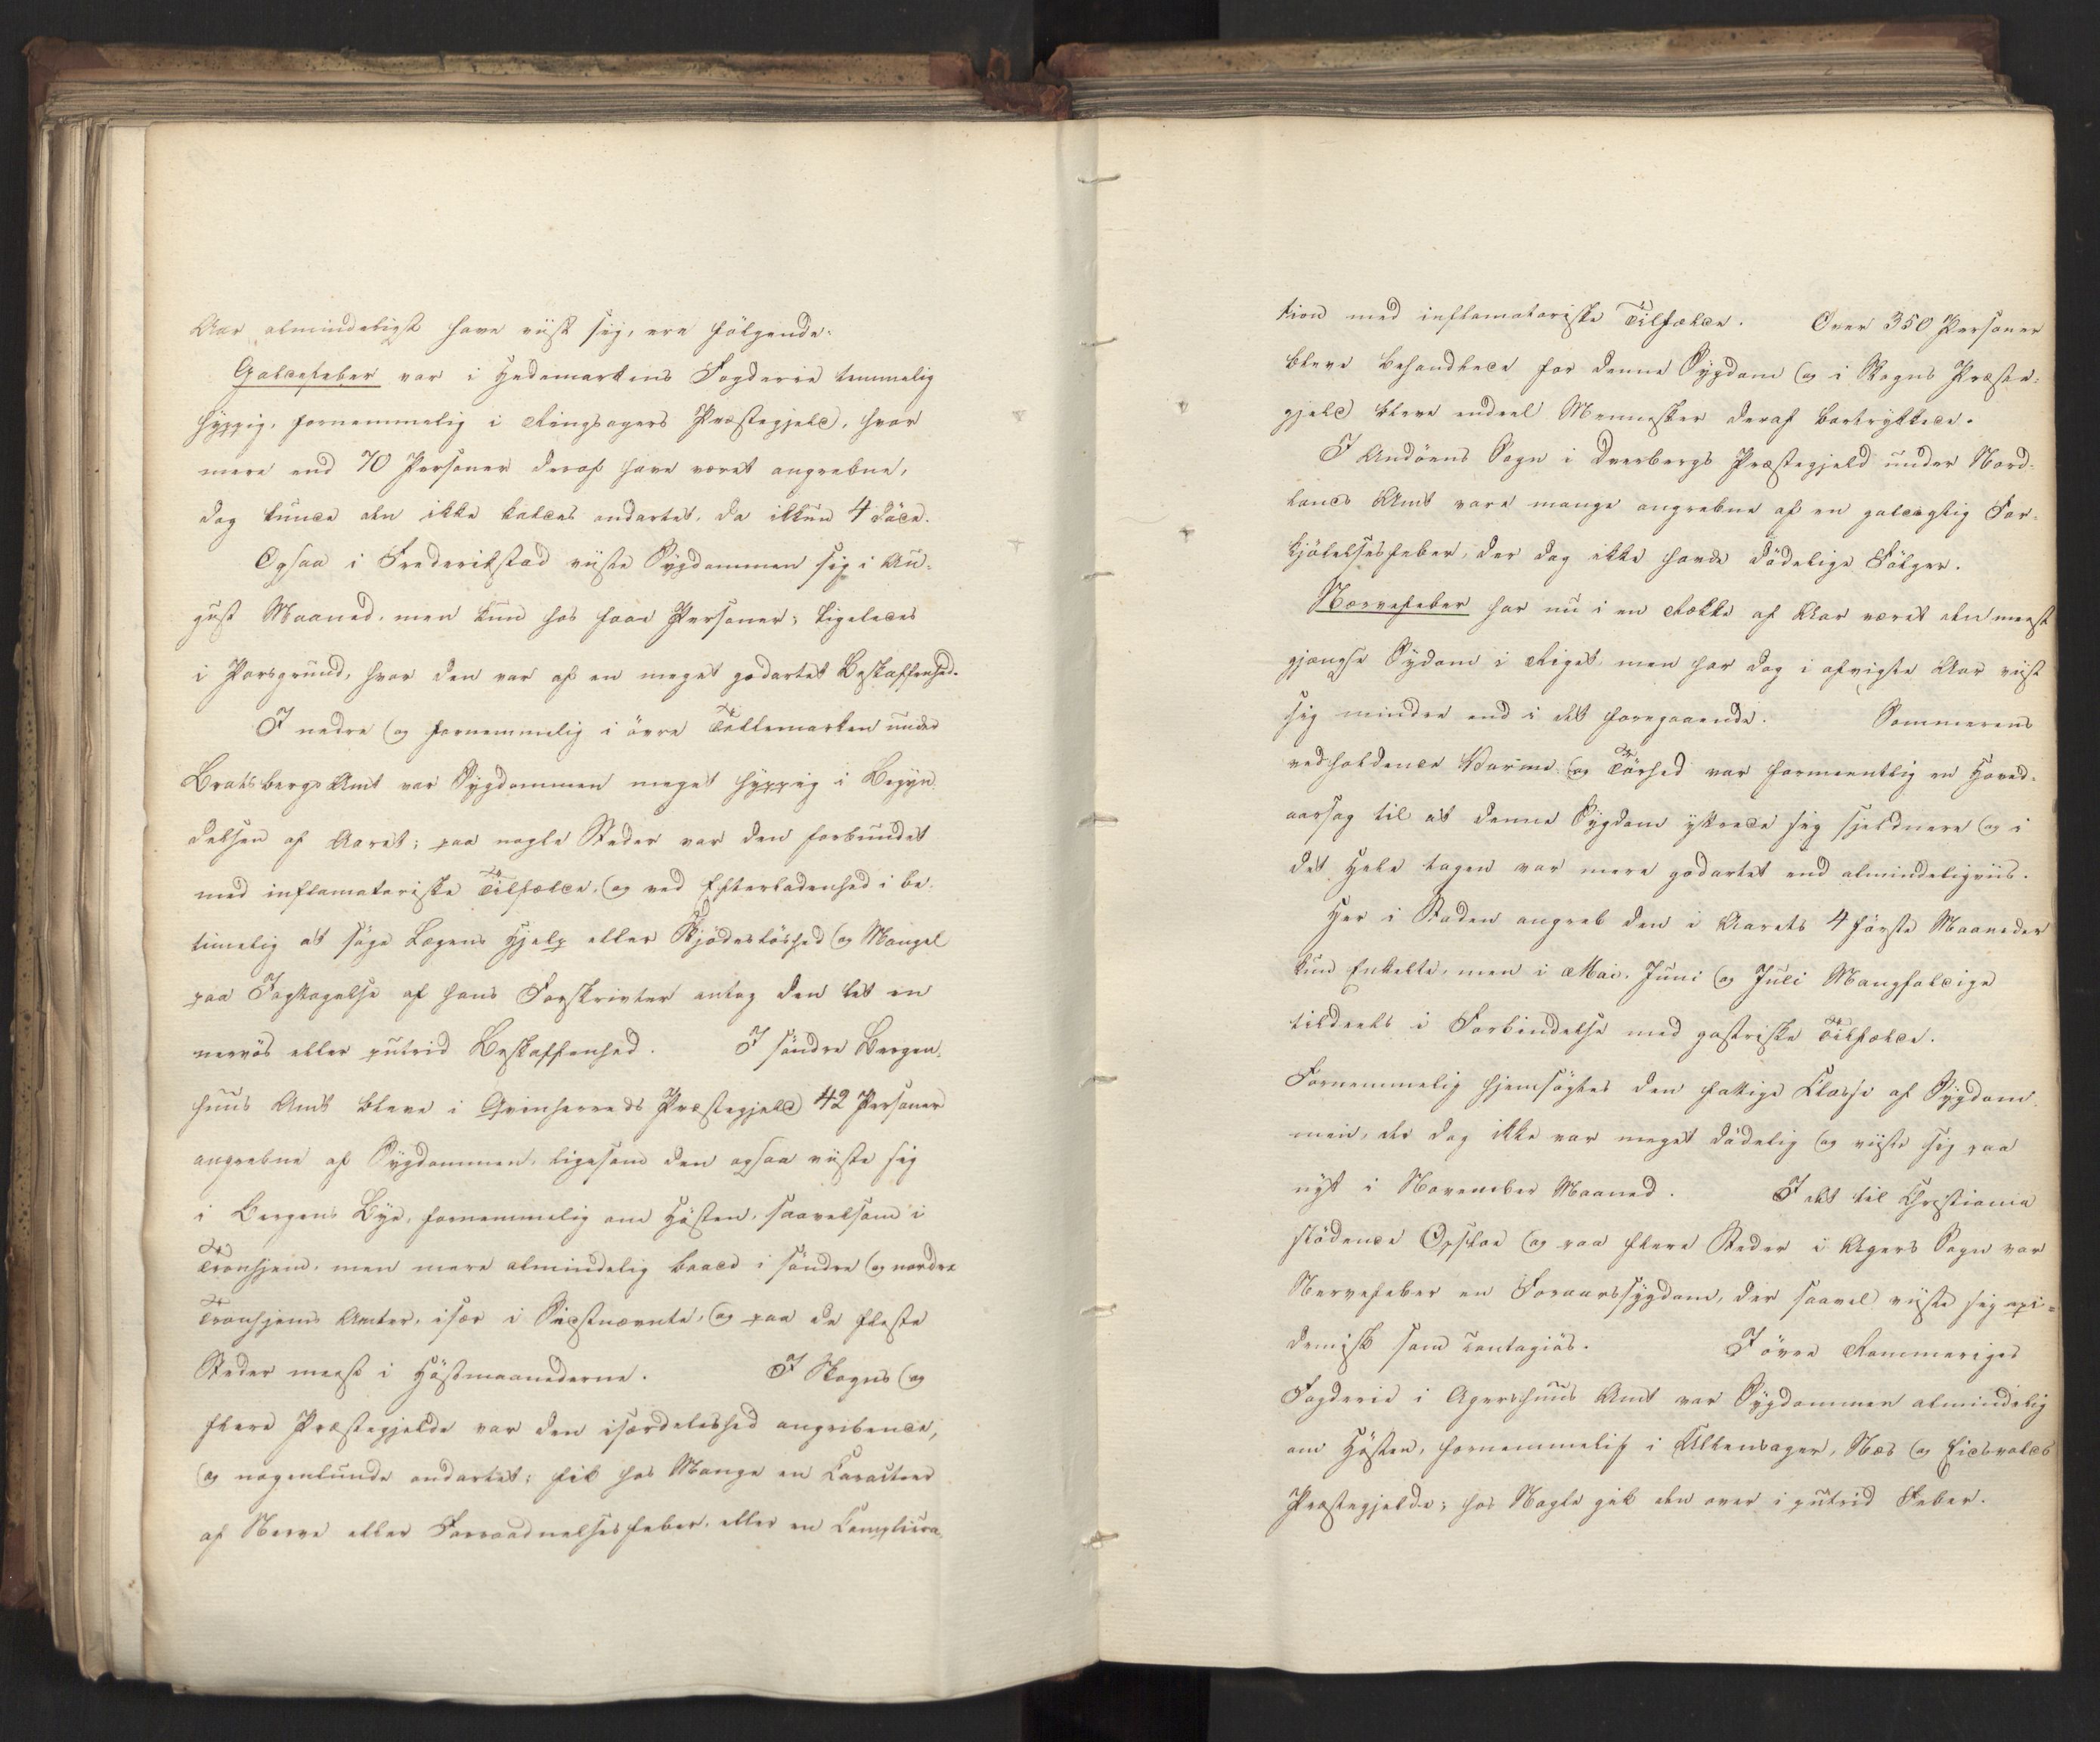 Aar almindeligst have viist sig, ere følgende:
Galdefeber var i Hedemarkens Fogderie temmelig
hyppig, fornemmelig i Ringsagers Præstegjeld, hvor
mere end 70 Personer deraf have været angrebne,
dog kunde den ikke kaldes ondartet, da ikkun 4 døde.
Ogsaa i Frederikstad viiste Sygdommen sig i Au-
gust Maaned, men kun hos faae Personer; ligeledes
i Porsgrund, hvor den var af en meget godartet Beskaffenhed.
I nedre og fornemmelig i øvre Tellemarken under
Bratsbergs Amt var Sygdommen meget hyppig i Begyn-
delsen af Aaret; paa nogle Steder var den forbundet
med inflamatoriske Tilfælde, og ved Efterladenhed i be-
timelig at søge Lægens Hjelp eller Skjødesløshed og Mangel
paa Iagttagelse af hans Forskrivter antog den let en
nervøs eller putrid Beskaffenhed. I søndre Bergen-
huus Amt bleve i Qvinherreds Præstegjeld 42 Personer
angrebne af Sygdommen, ligesom den ogsaa viiste sig
i Bergens Bye, fornemmelig om Høsten, saavelsom i
Tronhjem, men mere almindelig baade i søndre og nordre
Tronhjems Amter, især i Sidstnævnte, og paa de fleste
Steder meest i Høstmaanederne. I Skogns og
flere Præstegjelde var den isærdeleshed angribende,
og nogenlunde ondartet; fik hos Mange en Caracteer
af Nerve eller Forraadnelsesfeber, eller en Complica-
tion med inflamatoriske Tilfælde. Over 350 Personer
bleve behandlede for denne Sygdom og i Skogns Præste-
gjeld bleve endeel Mennesker deraf bortrykkede.
I Andøens Sogn i Dverbergs Præstegjeld under Nord-
lands Amt vare mange angrebne af en galdagtig For-
kjølelsesfeber, der dog ikke havde dødelige Følger.
Nervefeber har nu i en Række af Aar været den meest
gjængse Sydom i Riget, men har dog i afvigte Aar viist
sig mindre end i det foregaaende. Sommerens
vedholdende Varme og Tørhed var formeentlig en Hoved-
aarsag til at denne Sygdom yttrede sig sjeldnere og i
det Hele tagen var mere godartet end almindeligviis.
Her i Staden angreb den i Aarets 4 første Maaneder
kun Enkelte, men i Mai, Juni og Juli Mangfoldige
tildeels i Forbindelse med gastriske Tilfælde.
Fornemmelig hjemsøgtes den fattige Classe af Sygdom-
men, der dog ikke var meget dødelig og viiste sig paa
nyt i November Maaned. I det til Christiania
stødende Opsloe og paa flere Steder i Agers Sogn var
Nervefeber en Foraarssygdom, der saavel viiste sig epi-
demisk som contagiøs. I øvre Rommeriges
Fogderie i Agershuus Amt var Sygdommen almindelig
om Høsten, fornemmelig i Ullensager, Næs og Eidsvolds
Præstegjelde; hos Nogle gik den over i putrid Feber.